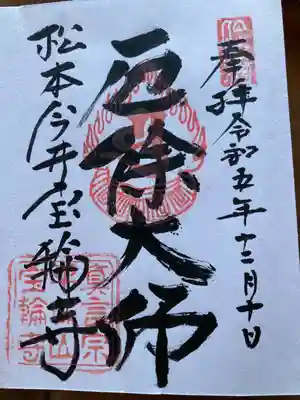 奉拝 令和五年十二月十日
厄除大師
松本今井宝輪寺
真言宗
宝輪寺